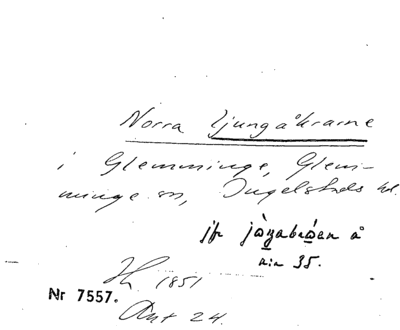 Norra ljungåkrarne
i Glemminge, Glem-
minge sn, Ingelstads hd.
jfr jɷ̀ɳabrɷ́en å
a:a 35.
1851
Nr 7557.
Ant 24.